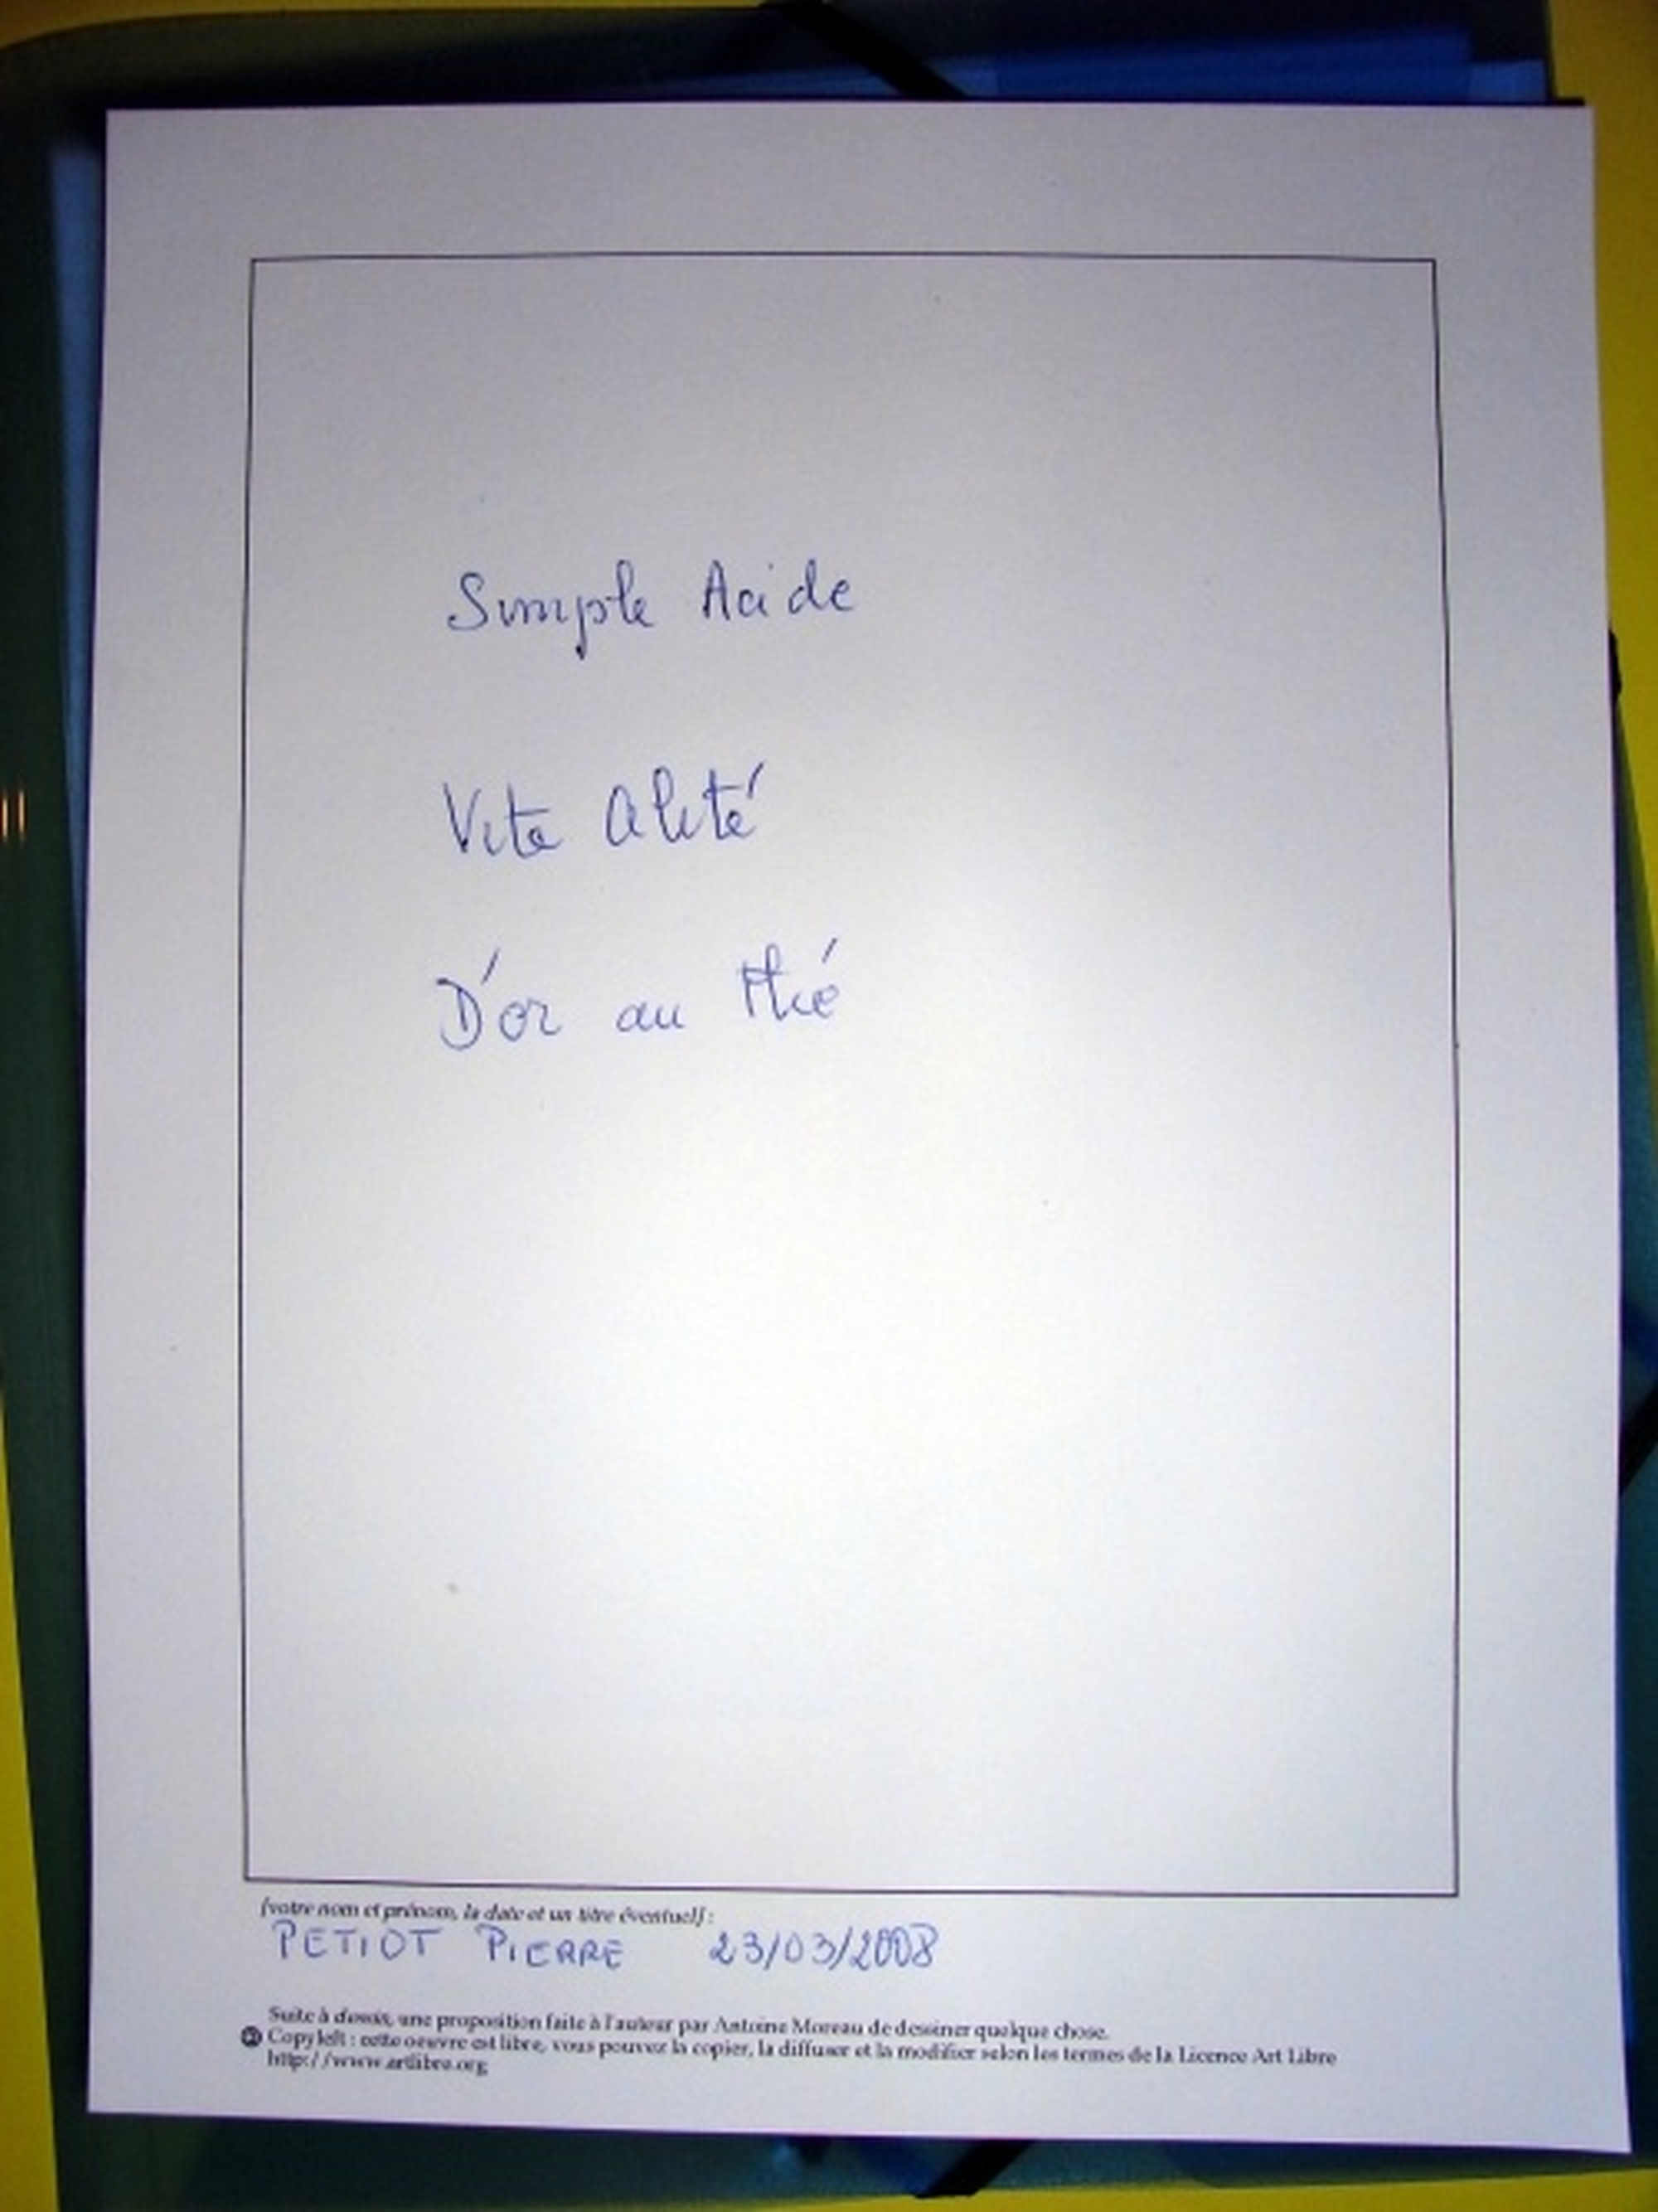 Simple Acide
Vite alité
D'or au thé
[votre nom et prénom, la date et un titre éventuel] :
PETIOT PIERRE 23/03/2008
Suite à dessin, une proposition faite à l'auteur par Antoine Moreau de dessiner quelque chose.
Copyleft : cette oeuvre est libre, vous pouvez la copier, la diffuser et la modifier selon les termes de la Licence Art Libre
http://www.artlibre.org